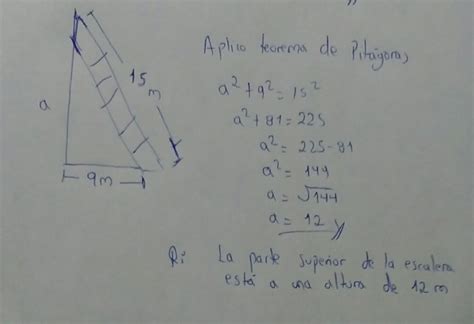 Aplico teorema de Pitágoras
15 m
a
9m
a² + 9² = 15²
a² + 81 = 225
a² = 225 - 81
a² = 144
a = √144
a = 12
R: La parte superior de la escalera
está a una altura de 12 m